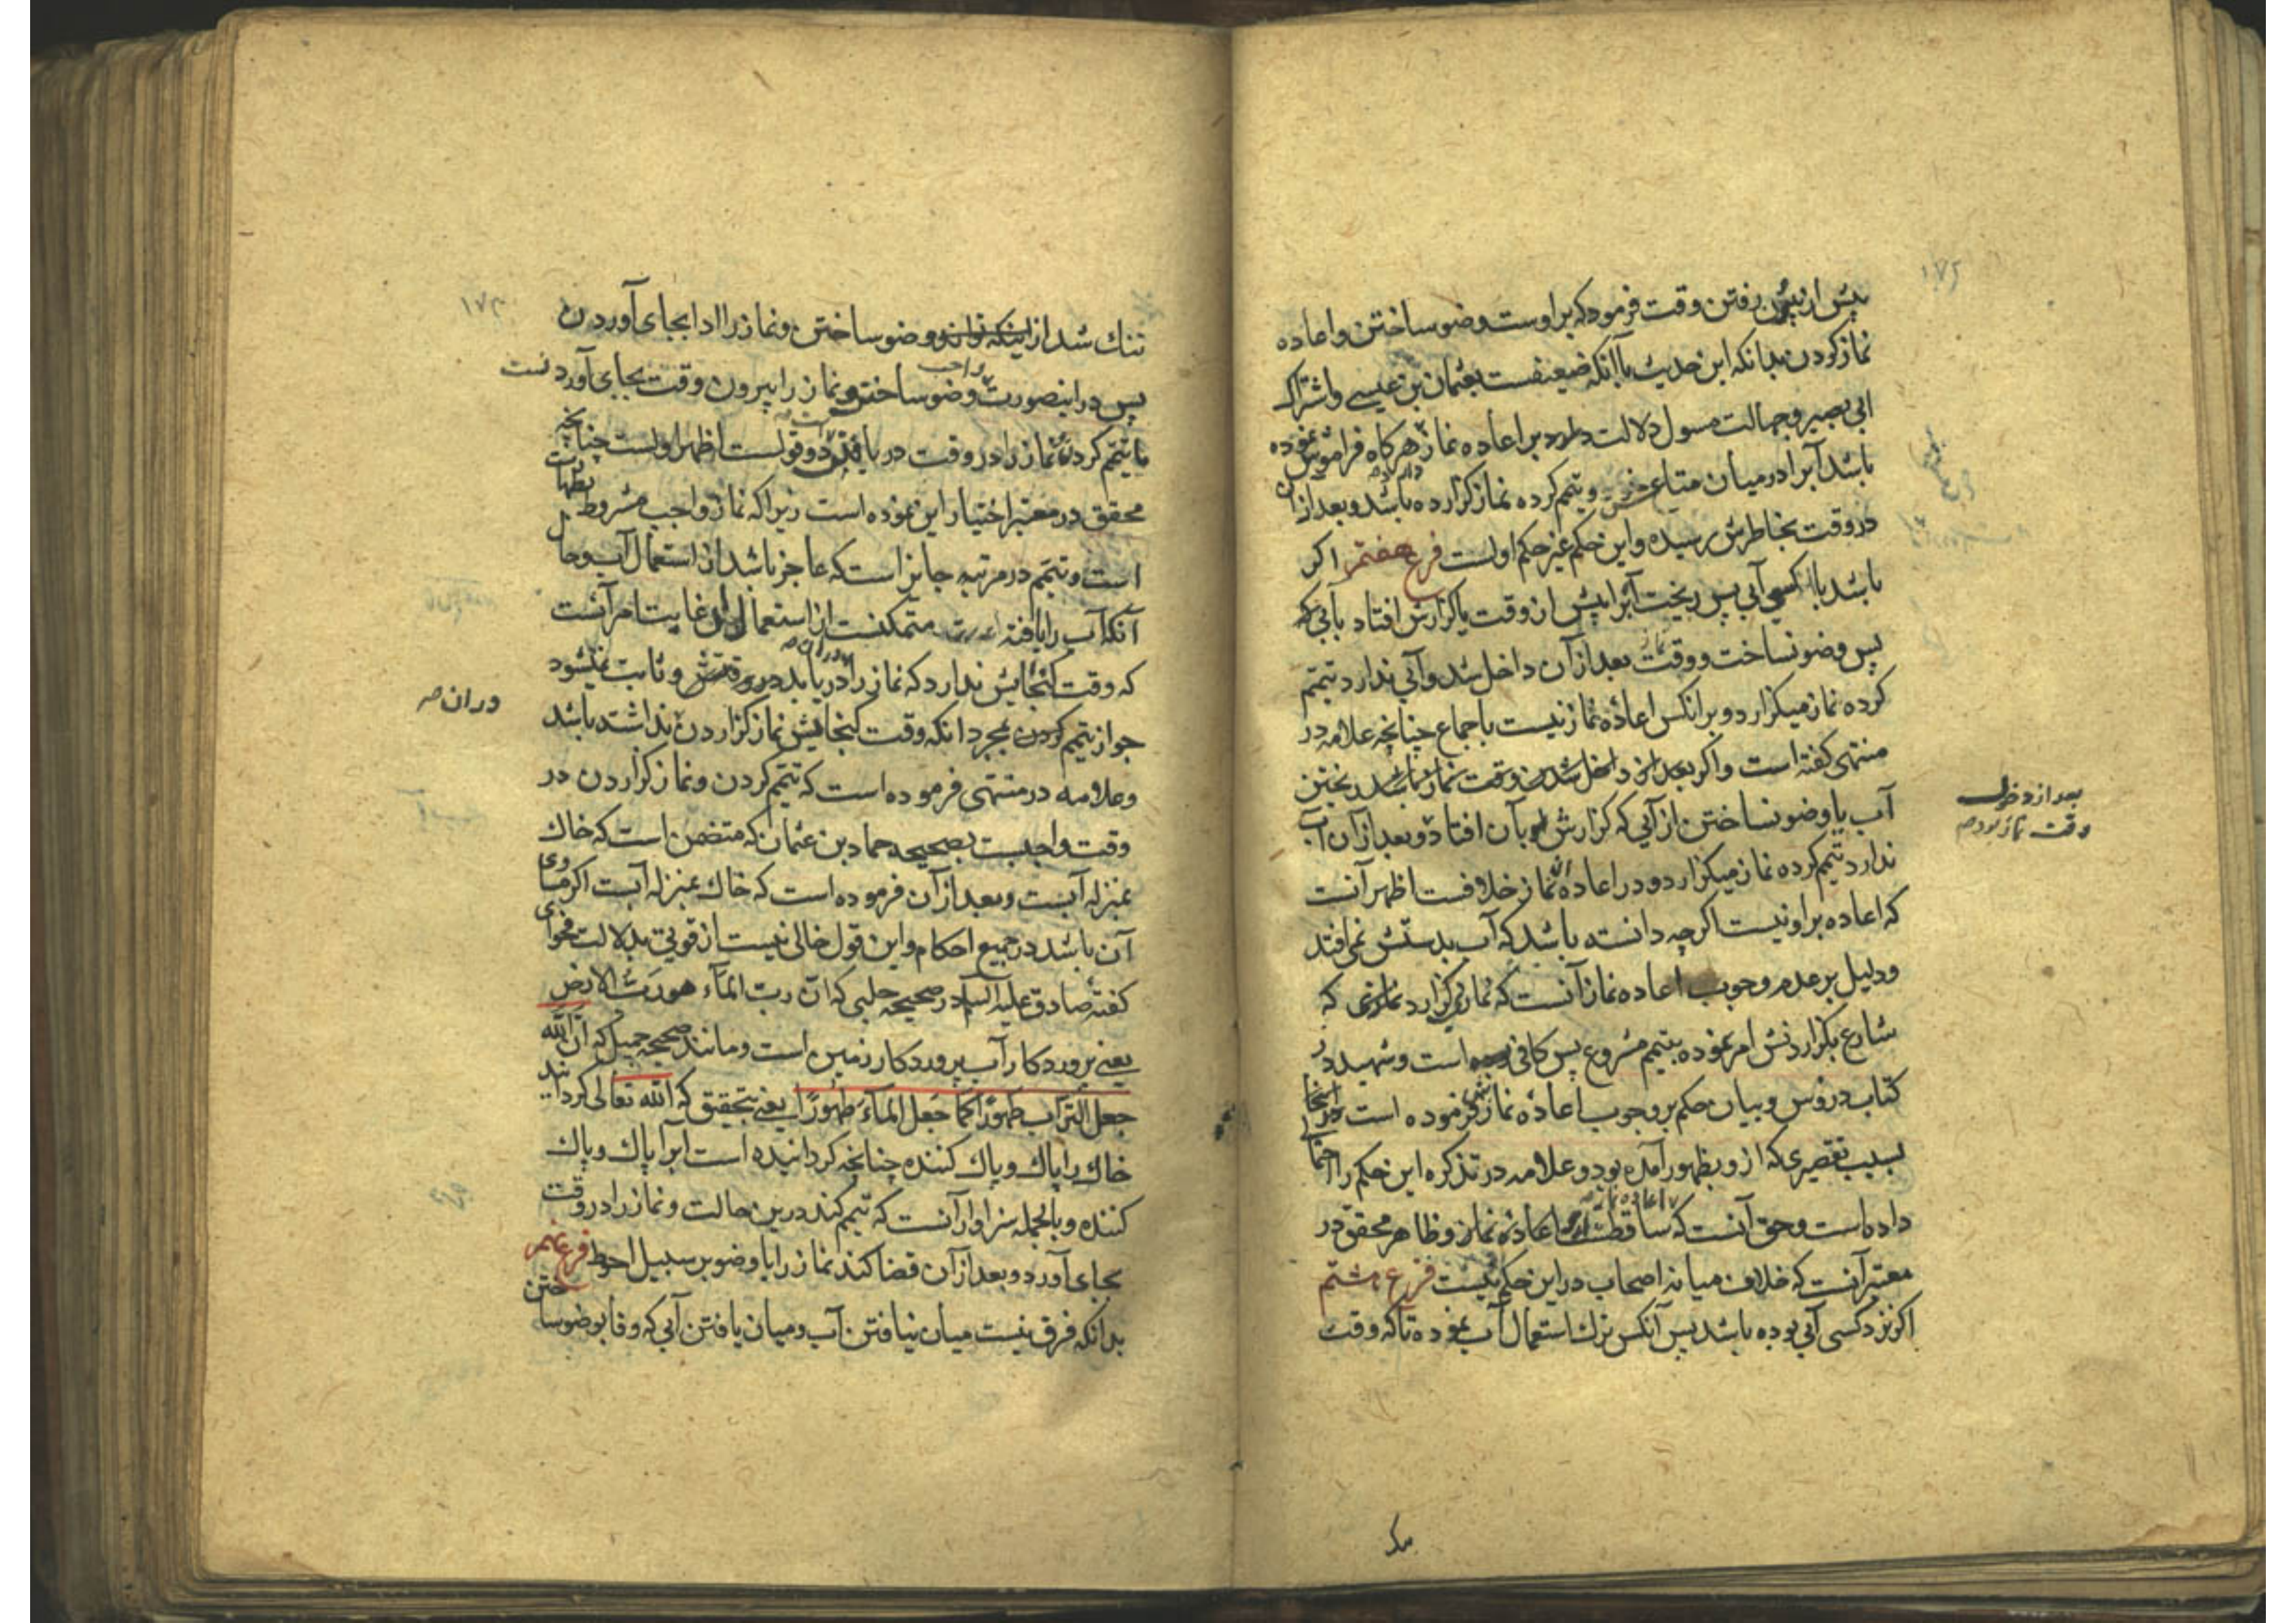 ۱۷۲
پس از بیرون رفتن وقت فرمود که بر اوست وضو ساختن و اعاده
نماز کردن بدانکه این حدیث با آنکه ضعیفست بعثمان بن عیسی و اشتراک
ابی بصیر و جهالت مسول دلالت دارد بر اعاده نماز هر کاه فراموش نموده
باشد آبرا در میان متاع خود و تیمم کرده نماز کزارده باشد و بعد از آن
در وقت بخاطرش رسیده و این حکم غیر حکم اولست فرع هفتم اکر
باشد با کسی آبی پس ریخت آنرا پیش از وقت یا کزارش افتاد بآبی که
پس وضو نساخت و وقت نماز بعد از آن داخل شد و آبی ندارد تیمم
کرده نماز میکزارد و بر آنکس اعاده نماز نیست باجماع چنانچه علامه در
منتهی کفته است و اکر بعد از داخل شدن وقت نماز باشد ریختن
بعد از دخول
وقت نماز بود صح
آب یا وضو نساختن از آبی که کزارش بآن افتاد و بعد از آن آب
ندارد تیمم کرده نماز میکزارد و در اعاده نماز خلافست اظهر آنست
که اعاده بر او نیست اکرچه دانسته باشد که آب بدستش نمی افتد
و دلیل بر عدم وجوب اعاده نماز آنست که نماز کزارد نمازی که
شارع بکزاردنش امر نموده بتیمم مشروع پس کافی است و شهید در
کتاب دروس و بیان حکم بر وجوب اعاده نماز فرموده است در اینجا
بسبب تقصیری که از و بظهور آمده بود و علامه در تذکره این حکم را احتمال
داده است و حق آنست که ساقطست اعاده نماز و ظاهر محقق در
معتبر آنست که خلاف میانه اصحاب در این حکم نیست فرع هشتم
اکر نزد کسی آبی بوده باشد پس آنکس ترک استعمال آب نموده تا که وقت
۱۷۳
تنک شد از اینکه تواند وضو ساختن و نماز را ادا بجای آوردن
پس در اینصورت واجب وضو ساختن و نماز را بیرون وقت بجای آوردنست
یا تیمم کردن و نماز را در وقت دریافتن دو قولست اظهر اولست چنانچه
محقق در معتبر اختیار این نموده است زیرا که نماز واجب مشروط بطهارت
است و تیمم در مرتبه جایز است که عاجز باشد از استعمال آب و حال
آنکه آب را یافته است متمکنست از استعمال آن غایت امر آنست
که وقت کنجایش ندارد که نماز را دریابد در وقتش و ثابت نمیشود
در ان صح
جواز تیمم کردن بمجرد انکه وقت کنجایش نماز کزاردن نداشته باشد
و علامه در منتهی فرموده است که تیمم کردن و نماز کزاردن در
وقت واجبست بصحیحه حماد بن عثمان که متضمن است که خاک
بمنزله آبست و بعد از آن فرموده است که خاک بمنزله آبست اکر مساوی
آن باشد در جمیع احکام و این قول خالی نیست از قوتی بدلالت فحوای
کفته صادق علیه السلام در صحیحه حلبی که انّ ربّ الماء هو ربّ الارض
یعنی پروردکار آب پروردکار زمین است و مانند صحیحه جمیل که انّ اللّه
جعل التراب طهورًا کما جعل الماءَ طهورًا یعنی بتحقیق که الله تعالی کردانید
خاک را پاک و پاک کننده چنانچه کردانیده است ابرا پاک و پاک
کننده و بالجمله سزاوار آنست که تیمم کند درین حالت و نماز را در وقت
بجای آورد و بعد از آن قضا کند نماز را با وضو بر سبیل احوط فرع نهم
بدانکه فرق نیست میان نیافتن آب و میان یافتن آبی که وفا بوضو ساختن